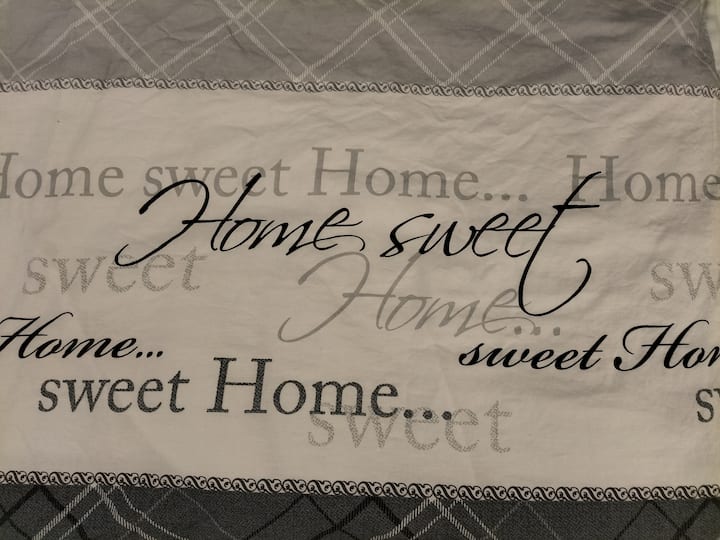 Home sweet Home... Home
Home sweet
sweet
Home...
Home...
sweet Hom
sweet Home...
sweet